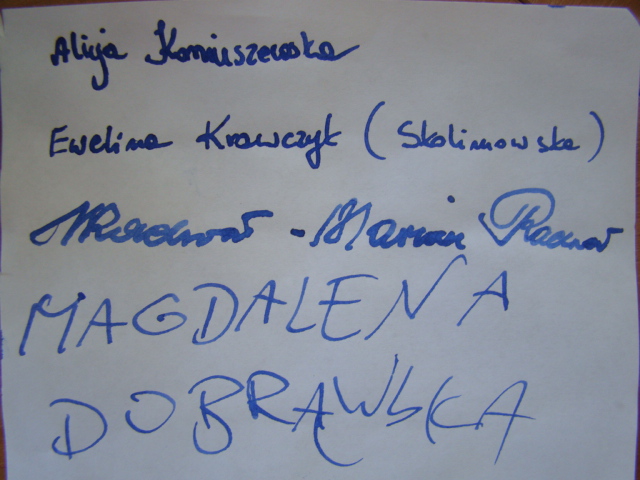 Alicja Koniuszewska
Ewelina Krawczyk (Skolimowska)
- Marian
MAGDALENA
DOBRĄWSKA